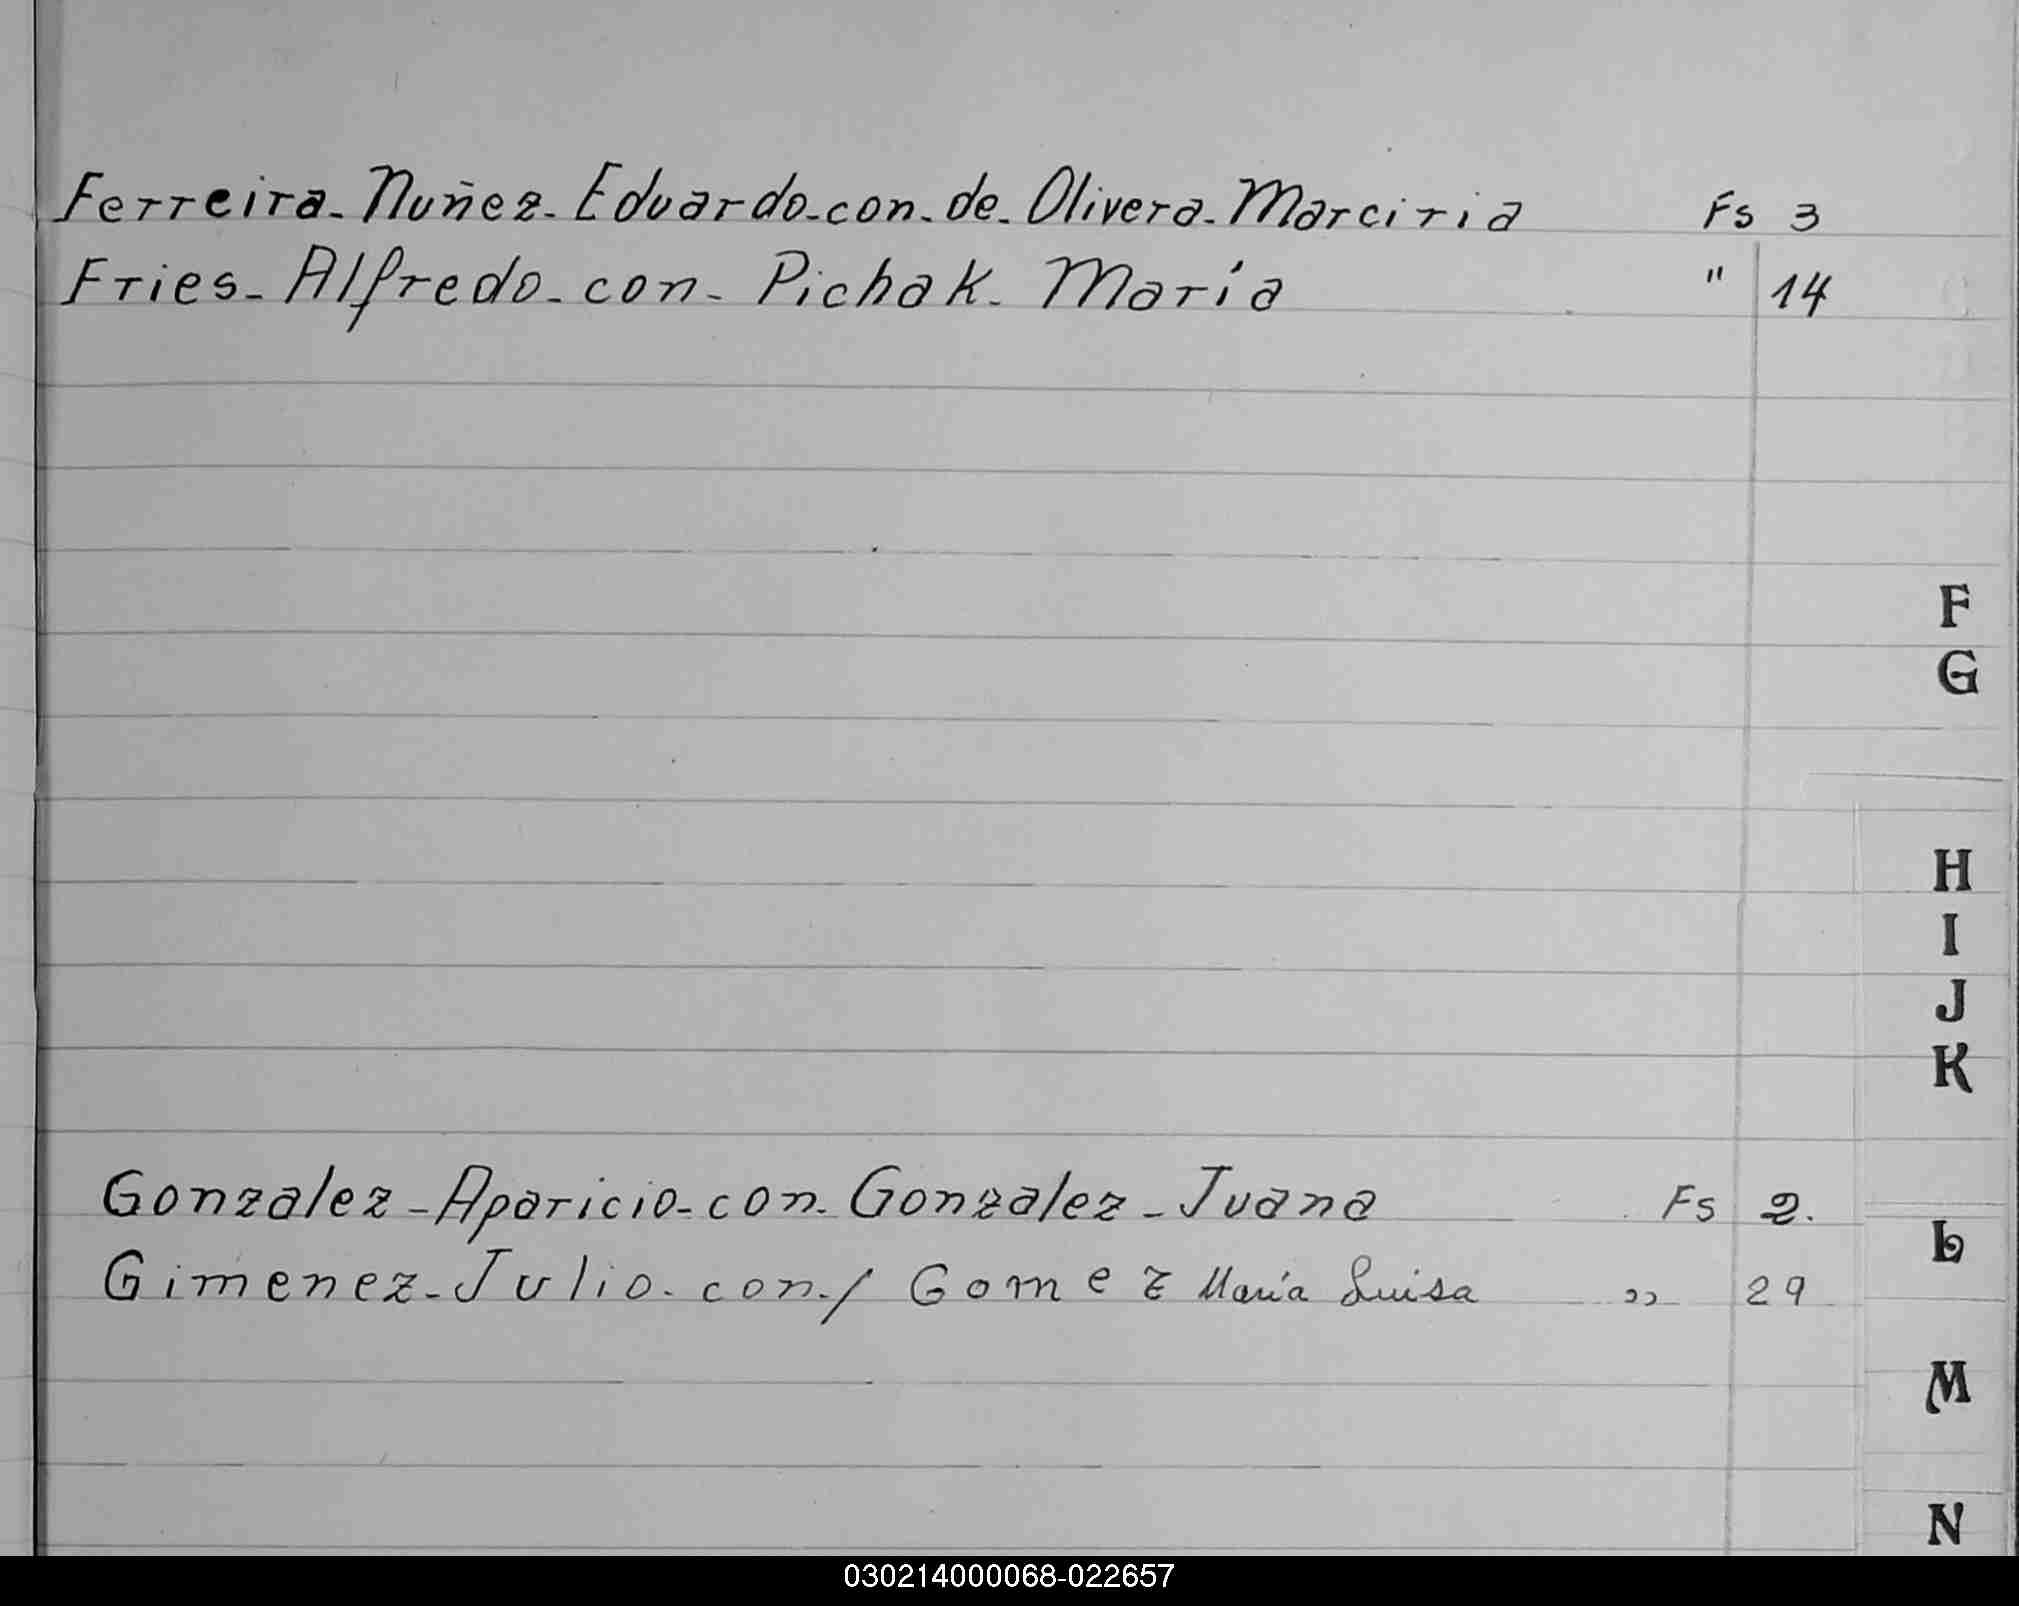 Ferreira-Nuñez-Eduardo-con-de-Olivera-Marciria Fs 3
Fries-Alfredo-con-Pichak-María " 14
F
G
H
I
J
K
Gonzalez-Aparicio-con-Gonzalez-Juana Fs 2.
Gimenez-Julio-con-/ Gomez María Luisa " 29
L
M
N
030214000068-022657